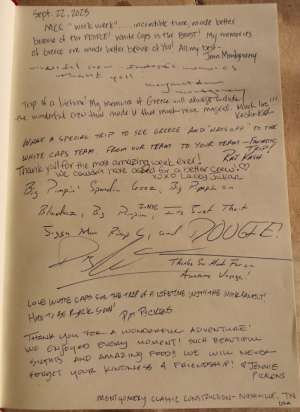 Sept. 22, 2023
"work week"..... incredible time, made better
because of the PEOPLE! White Caps is the BEST! My memories
of Greece are made better because of You! All my best -
Jenn Montgomery
wonderful crew fantastic memories
thank you!
Margaret
Montgomery
Trip of a lifetime! My memories of Greece will always include
the wonderful crew that made it that much more magical. Much love!!!
WHAT A SPECIAL TRIP TO SEE GREECE AND TO THE
WHITE CAPS TEAM FROM OUR TEAM TO YOUR TEAM - FANTASTIC
TRIP!
Thank you for the most amazing week ever!
We couldn't have asked for a better crew!
XOXO Lacey
Big Pimpin' Spendin Geez, Big Pimpin on
Big Pimpin,
and DOUGIE!
Thanks So Much For an
Awesome Voyage!
LOVE WHITE CAPS FOR THE TRIP OF A LIFETIME WITH THE MRS!
HOPE TO BE BACK SOON!
PICKENS
THANK YOU FOR A WONDERFUL ADVENTURE!
WE ENJOYED EVERY MOMENT! SUCH BEAUTIFUL
SIGHTS AND AMAZING FOOD! WE WILL NEVER
FORGET YOUR KINDNESS & FRIENDSHIP!
JENNIE
PICKENS
MONTGOMERY CLASSIC CONSTRUCTION - NASHVILLE, TN
USA